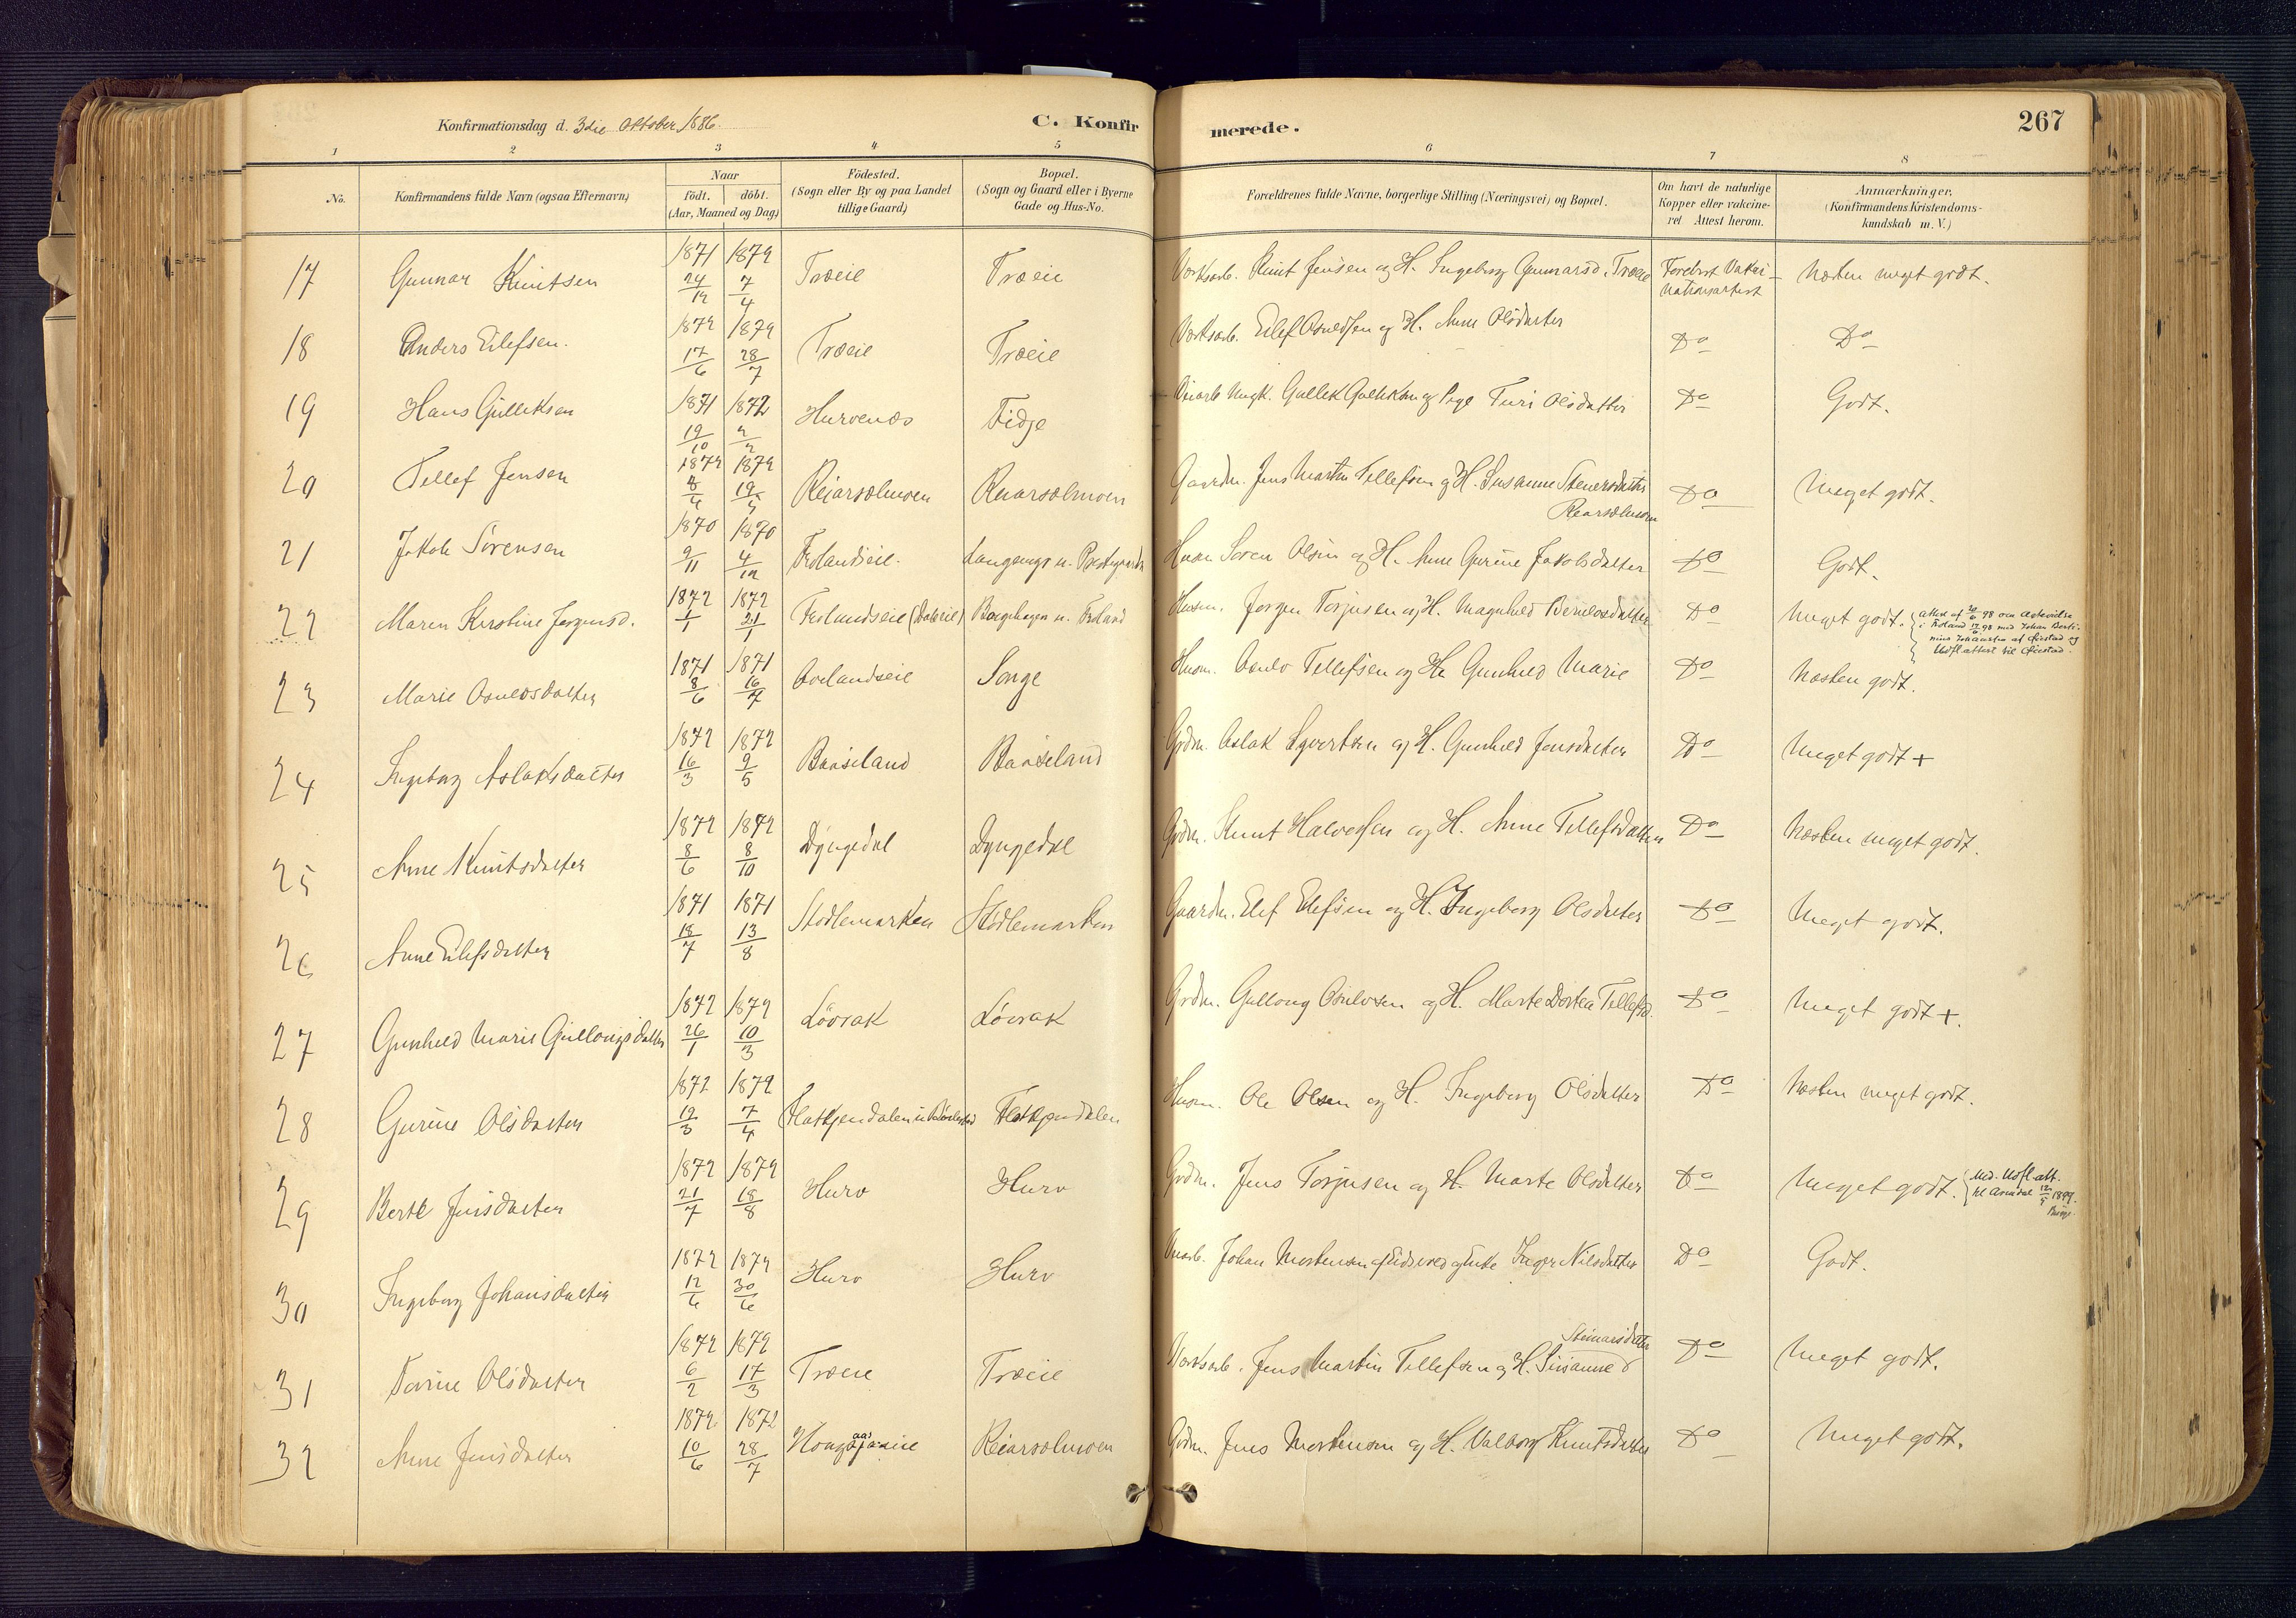 Konfirmationsdag d. 3die Oktober 1886.
C. Konfirmerede.
267
1 2 3 4 5 6 7 8
No.
Konfirmandens fulde Navn (ogsaa Efternavn)
Naar
födt. döbt.
(Aar, Maaned og Dag)
Födested.
(Sogn eller By og paa Landet
tillige Gaard)
Bopæl.
(Sogn og Gaard eller i Byerne
Gade og Hus-No.
Forældrenes fulde Navne, borgerlige Stilling (Næringsvei) og Bopæl.
Om havt de naturlige
Kopper eller vakcine-
ret Attest herom.
Anmærkninger,
(Konfirmandens Kristendoms-
kundskab m. V.)
17 Gunnar Knutsen 1871 24/12 1872 7/4 Træeie Træeie Værksarb. Knut Jensen og H. Ingeborg Gunnarsd. Træeie Forevist Vakci-
nationsattest Næsten meget godt.
18 Anders Eilefsen. 1872 17/6 1872 28/7 Træeie Træeie Værksarb. Eilef Osuldsen og H. Anne Olsdatter Do Do
19 Hans Gulleksen 1871 19/10 1872 2/2 Hurvenæs Fidje Ungk. Gullek Gulleksen og Pige Turi Olsdatter Do Godt.
20 Tellef Jensen 1872 8/4 1872 19/5 Reiarsølmoen Reiarsølmoen Gaardm. Jens Martin Tellefsen og H. Susanne Stenersdatter
Reiarsølmoen Do Meget godt.
21 Jakob Sörensen 1870 9/11 1870 4/12 Frolandseie. Langengs u. Præstgaarden Husm Sören Olsen og H. Anne Gurine Jakobsdatter Do Godt.
22 Maren Kirstine Jörgensd. 1872 1/1 1872 21/1 Frolandseie Borgehagen u. Froland Husm. Jörgen Torjusen og H. Magnhild Do Meget godt. Attest af 20/6 98 om Ægtevielse
i Froland 12/6 98 med Johan Berti-
nius Johansen af Øiestad og
Udfl.attest til Øiestad.
23 Marie Osuldsdatter 1871 8/6 1871 16/7 Ovelandseie Songe Husm. Osuld Tellefsen og H. Gunhild Marie Do Næsten godt.
24 Ingeborg Aslaksdatter 1872 16/3 1872 9/5 Baaseland Baaseland Grdm. Aslak Syvertsen og H. Gunhild Jensdatter Do Meget godt +
25 Anne Knutsdatter 1872 8/6 1872 8/10 Dyngedal Dyngedal Grdm. Knut Halvorsen og H. Anne Tellefsdatter Do Næsten meget godt.
26 Anne Eilefsdatter 1871 18/7 1871 13/8 Stödlemarken Stödlemarken Gaardm. Elef Elefsen og H. Ingeborg Olsdatter Do Meget godt.
27 Gunhild Marie Gullougsdatter 1872 26/1 1872 10/3 Lövrak Lövrak Grdm. Gulloug Osulvsen og H. Marte Dortea Tellefsd. Do Meget godt +.
28 Gurine Olsdatter 1872 19/3 1872 7/4 Flatkjendalen Flatkjendalen Husm. Ole Olsen og H. Ingeborg Olsdatter Do Næsten meget godt.
29 Berte Jensdatter 1872 21/7 1872 18/8 Hurv Hurv Grdm. Jens Torjusen og H. Marte Olsdatter Do Meget godt. Med. Udfl.att.
til Arendal 12/5 1899.
30 Ingeborg Johansdatter 1872 12/6 1872 30/6 Hurv Hurv Johan Mortensen og Enke Inger Nilsdatter Do Godt.
31 Torine Olsdatter 1872 6/2 1872 17/3 Træeie Træeie Værksarb. Jens Martin Tellefsen og H. Susanne Steinarsdatter Do Meget godt.
32 Anne Jensdatter 1872 10/6 1872 28/7 Reiarsølmoen Grdm. Jens Mortensen og H. Valborg Knutsdatter Do Meget godt.